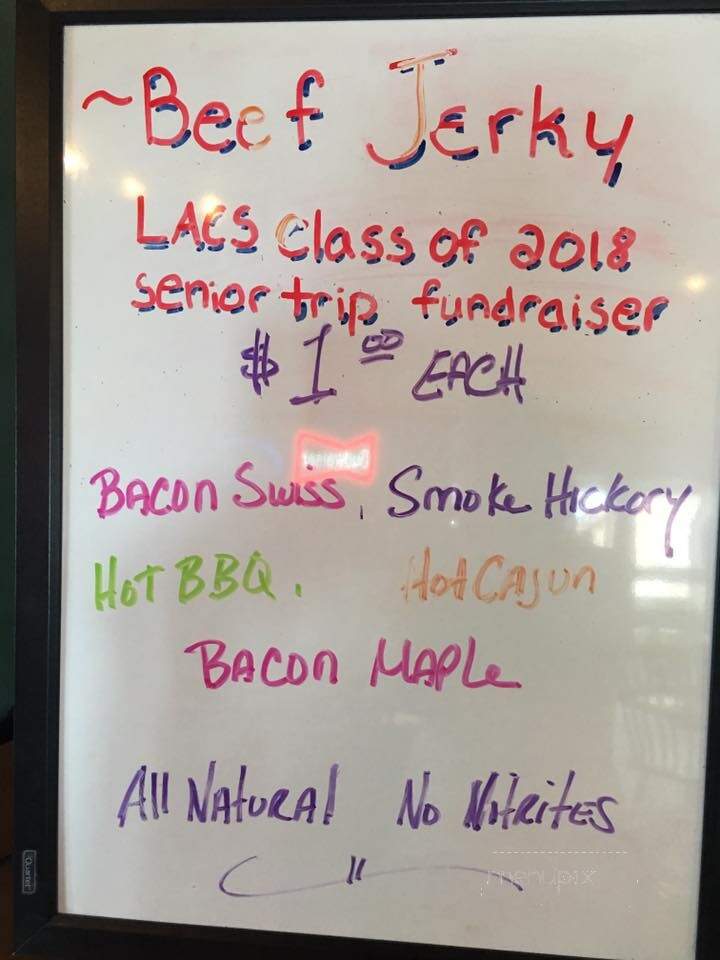 ~Beef Jerky
LACS Class of 2018
senior trip fundraiser
$1.00 EACH
BACON Swiss, Smoke Hickory
HOT BBQ. Hot CAJUN
BACON MAPLE
All NATURAL No NitRITES
Quartet
menupix